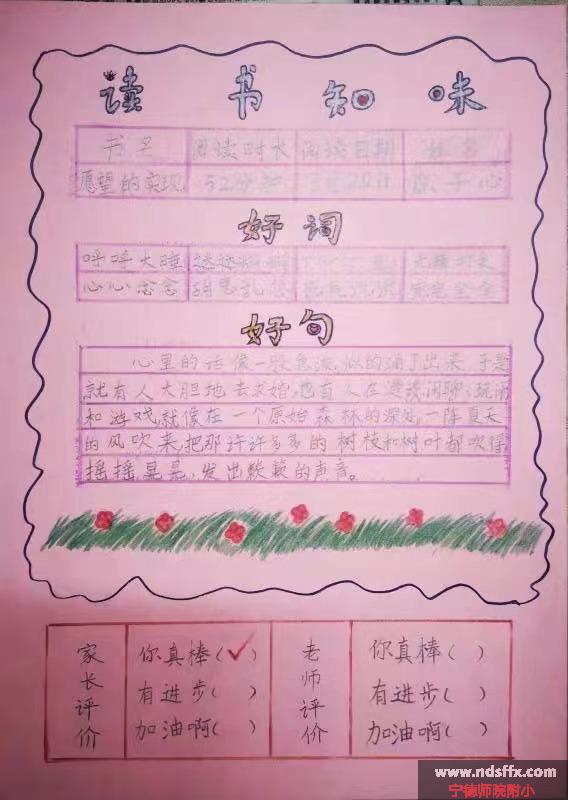 读书知味
书名 阅读时长 阅读日期
愿望的实现 52分钟
好词
呼呼大睡
心心念念 胡思乱想 完完全全
好句
心里的话像一股急流似的涌了出来,于是
就有人大胆地去求婚,也有人在漫谈闲聊,玩闹
和游戏,就像在一个原始森林的深处,一阵夏天
的风吹来,把那许许多多的树枝和树叶都吹得
摇摇晃晃,发出簌簌的声音。
家长评价 你真棒(✓) 老师评价 你真棒( )
有进步( ) 有进步( )
加油啊( ) 加油啊( )
www.ndsffx.com
宁德师院附小